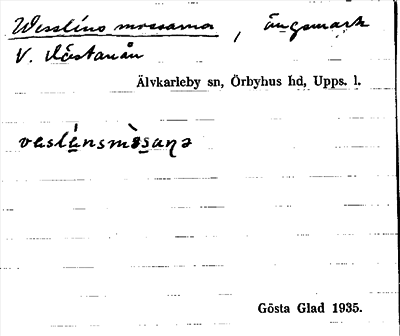 Wessléns mossarna, ängsmark
V. Västanån
Älvkarleby sn, Örbyhus hd, Upps. l.
vaslé̱nsmòs̱aɳə
Gösta Glad 1935.